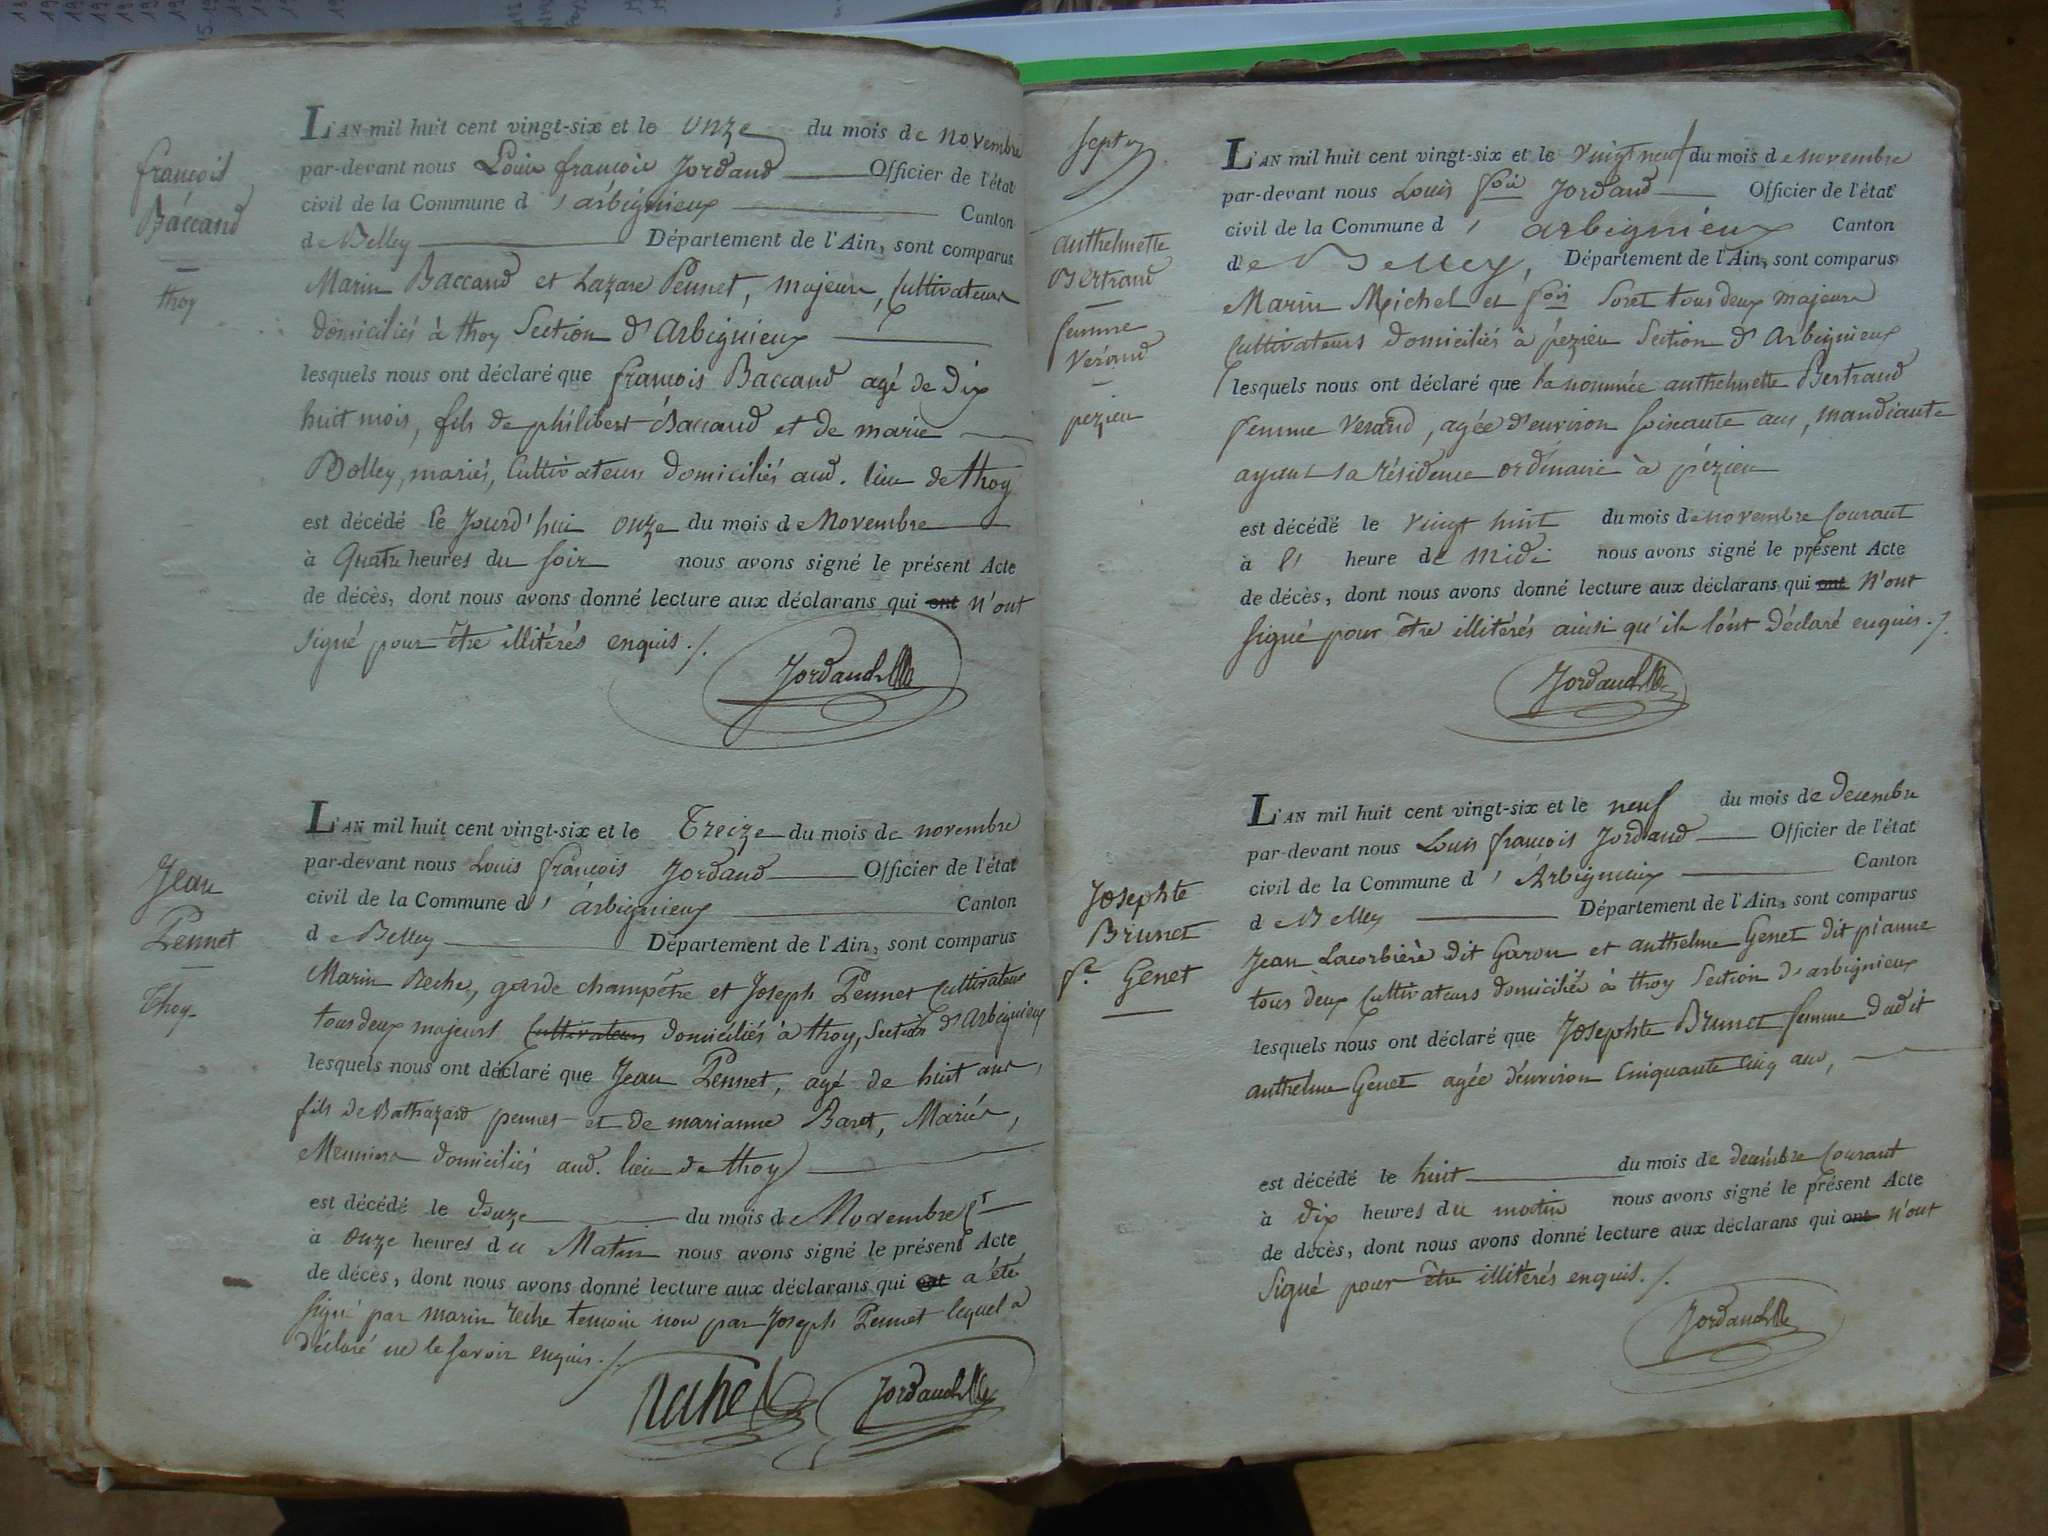 françois
Baccand
thoy
L'AN mil huit cent vingt-six et le onze du mois de novembre
par-devant nous Louis françois Jordand Officier de l'état
civil de la Commune d'arbignieux Canton
de Belley Département de l'Ain, sont comparus
Marin Baccand et Lazare Pennet, majeurs, Cultivateurs
domiciliés à thoy Section d'Arbignieux
lesquels nous ont déclaré que françois Baccand agé de dix
huit mois, fils de philibert Baccand et de marie
Bolley, mariés, Cultivateurs domiciliés aud. lieu de thoy
est décédé le Jourd'hui onze du mois de Novembre
à Quatre heures du soir nous avons signé le présent Acte
de décès, dont nous avons donné lecture aux déclarans qui ont n'ont
signé pour être illitérés enquis ./.
Jordand
Jean
Pennet
Thoy
L'AN mil huit cent vingt-six et le Treize du mois de novembre
par-devant nous Louis françois Jordand Officier de l'état
civil de la Commune d'arbignieux Canton
de Belley Département de l'Ain, sont comparus
Marin Reche, garde champêtre et Joseph Pennet Cultivateur
tous deux majeurs Cultivateurs domiciliés à thoy, Section d'Arbignieux
lesquels nous ont déclaré que Jean Pennet, agé de huit ans,
fils de Balthazard pennet et de marianne Baret, Mariés,
Meuniers domiciliés aud. lieu de thoy
est décédé le Douze du mois de Novembre Ct
à onze heures du Matin nous avons signé le présent Acte
de décès, dont nous avons donné lecture aux déclarans qui ont a été
signé par marin reche temoin non par Joseph Pennet lequel a
déclaré ne le savoir enquis ./.
Jordand
anthelmette
Bertrand
femme
Verand
pezieu
L'AN mil huit cent vingt-six et le vingt neuf du mois de novembre
par-devant nous Louis fois Jordand Officier de l'état
civil de la Commune d'arbignieux Canton
de Belley, Département de l'Ain, sont comparus
Marin Michel et fois Soret tous deux majeurs
Cultivateurs domiciliés à pézieu Section d'Arbignieux
lesquels nous ont déclaré que la nommée anthelmette Bertrand
femme Verand, agée d'environ soixante ans, mandiante
ayant sa résidence ordinaire à pézieu
est décédé le vingt huit du mois de novembre Courant
à l' heure de midi nous avons signé le présent Acte
de décès, dont nous avons donné lecture aux déclarans qui ont N'ont
signé pour être illitérés ainsi qu'ils l'ont déclaré enquis ./.
Jordand
Josephte
Brunet
fe Genet
L'AN mil huit cent vingt-six et le neuf du mois de decembre
par-devant nous Louis françois Jordand Officier de l'état
civil de la Commune d'Arbignieux Canton
de Belley Département de l'Ain, sont comparus
Jean Lacorbière dit Garon et anthelme Genet dit pianne
tous deux Cultivateurs domiciliés à thoy Section d'arbignieux
lesquels nous ont déclaré que Josephte Brunet femme dudit
anthelme Genet agée d'environ Cinquante Cinq ans,
est décédé le huit du mois de decembre Courant
à dix heures du matin nous avons signé le présent Acte
de décès, dont nous avons donné lecture aux déclarans qui ont n'ont
signé pour être illitérés enquis ./.
Jordand